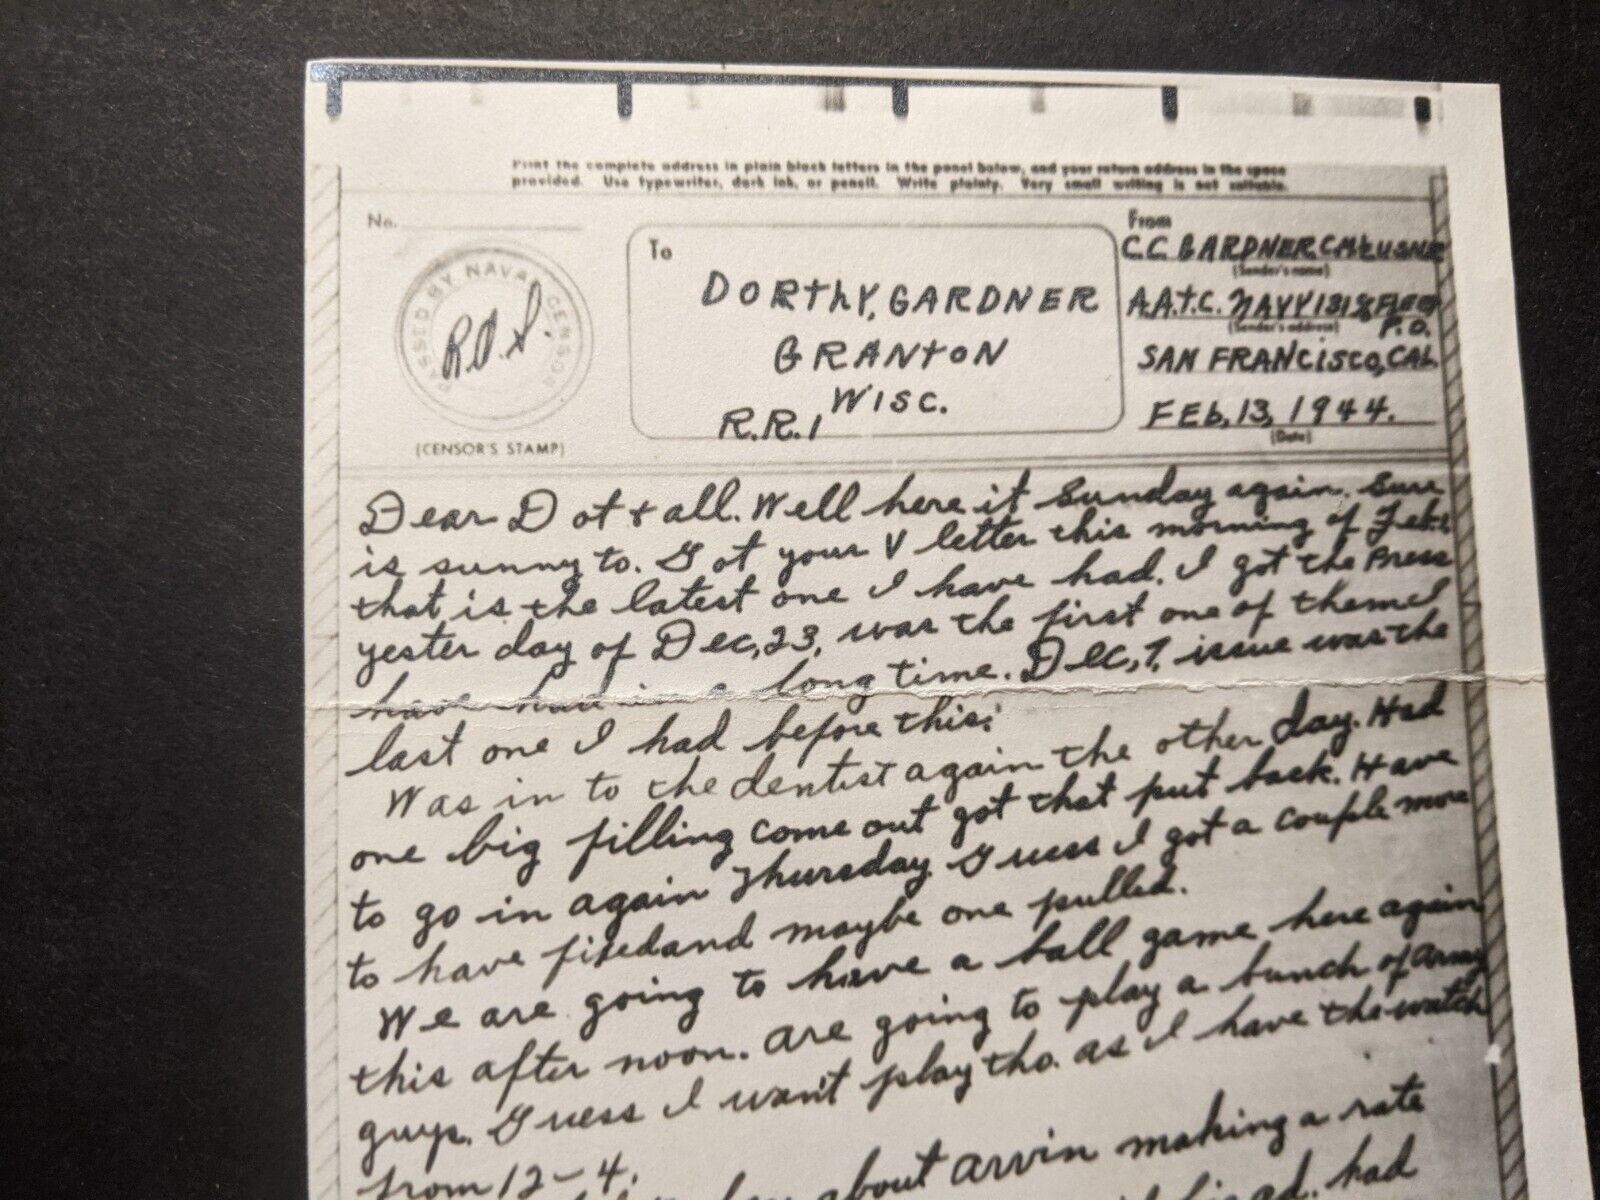 Print the complete address in plain block letters in the panel below, and your return address in the space
provided. Use typewriter, dark ink, or pencil. Write plainly. Very small writing is not suitable.
No.
PASSED BY NAVAL CENSOR
(CENSOR'S STAMP)
To
DORTHY, GARDNER
GRANTON
WISC.
R.R.1
From
C.C. GARDNER. USNR
(Sender's name)
A.A.T.C. NAVY 131 % FLEET
(Sender's address)
P.O.
SAN FRANCISCO, CAL
FEb, 13, 1944.
(Date)
Dear Dot + all. Well here it Sunday again. Sure
is sunny to. Got your V letter this morning of Feb.
that is the latest one I have had. I got the Press
yester day of Dec, 23, was the first one of them I
have had in a long time. Dec, 7, issue was the
last one I had before this.
Was in to the dentist again the other day. Had
one big filling come out got that put back. Have
to go in again Thursday. Guess I got a couple more
to have fixed and maybe one pulled.
We are going to have a ball game here again
this after noon. are going to play a bunch of army
guys. Guess I wan't play tho. as I have the watch
from 12-4.
about Arvin making a rate
had